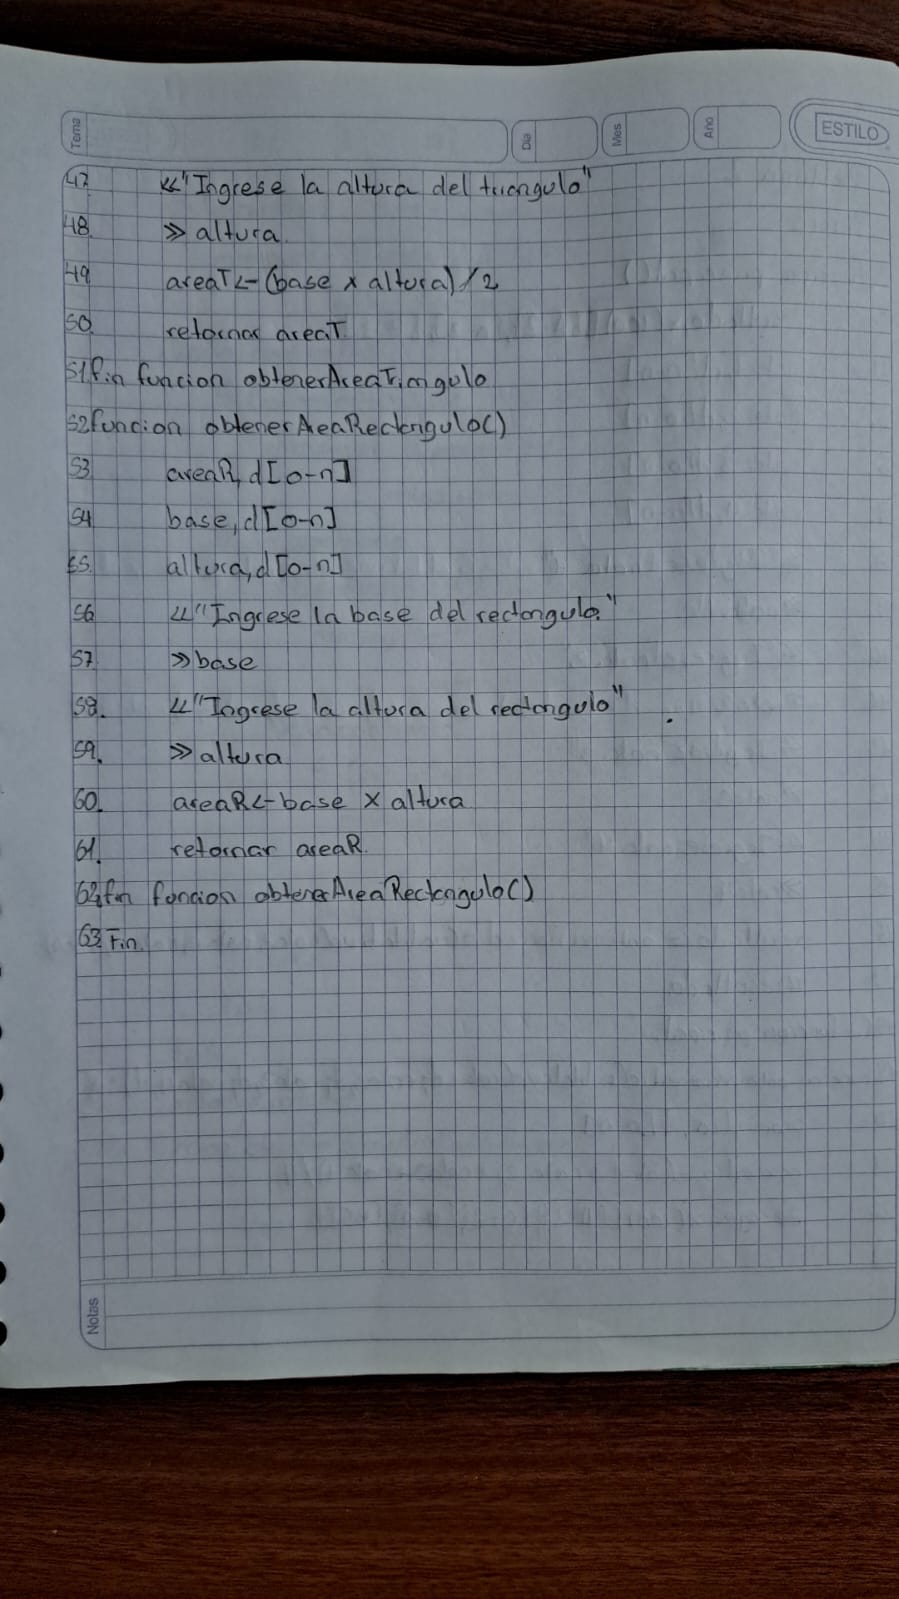 Tema
Dia
Mes
Año
ESTILO
47 <<"Ingrese la altura del triangulo"
48. >> altura.
49 areaT<-(base x altura)/2
50. retornar areaT
51 fin funcion obtenerAreaTriangulo
52 funcion obtenerAreaRectangulo()
53 areaR, d[0-n]
54 base, d[0-n]
55. altura, d[0-n]
56 <<"Ingrese la base del rectangulo."
57. >> base
58. <<"Ingrese la altura del rectangulo"
59. >> altura
60. areaR<-base x altura
61. retornar areaR.
62 fin funcion obtenerAreaRectangulo()
63 Fin.
Notas